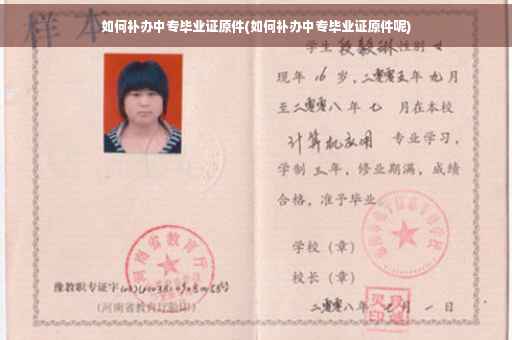 样本
如何补办中专毕业证原件(如何补办中专毕业证原件呢)
学生 段毅琳 性别 女
现年 16 岁，二零零五年 九月
至二零零八年 七 月在本校
计算机应用 专业学习，
学制 三 年，修业期满，成绩
合格，准予毕业。
学校（章）
校长（章）
二零零八年 七 月 一 日
河南省教育厅
豫教职专证字
(河南省教育厅验印)